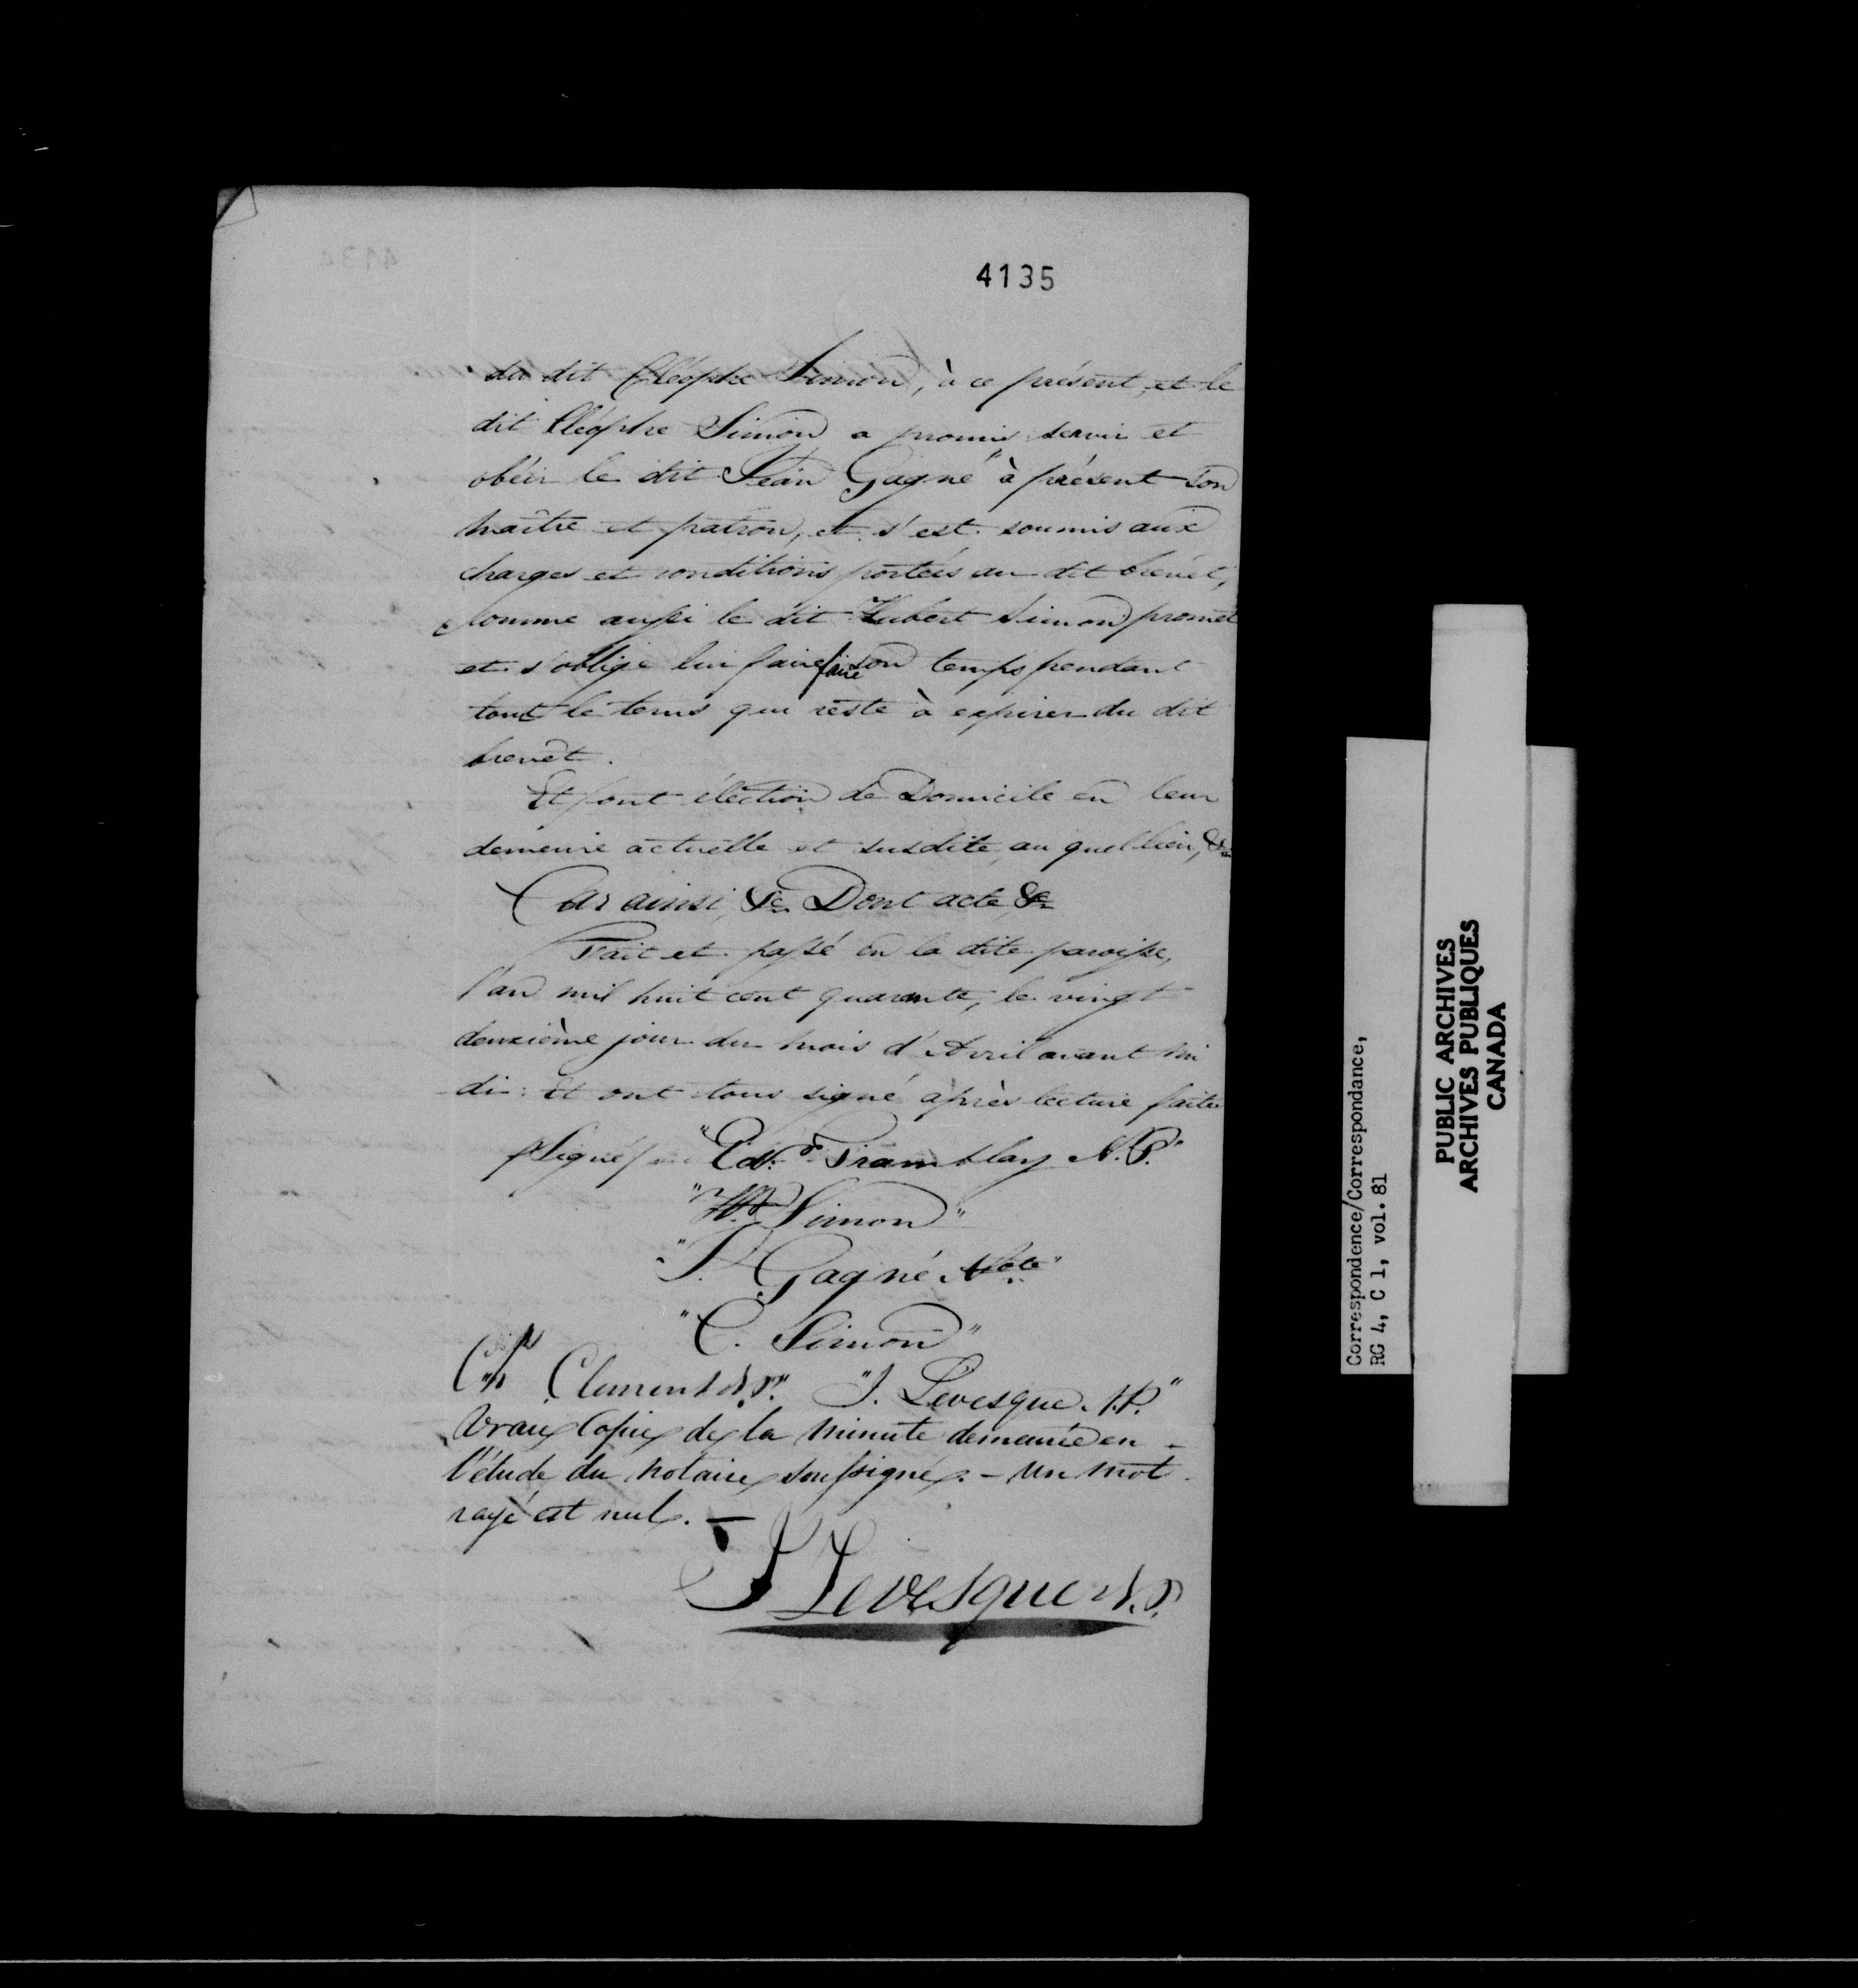 4135
du dit Cléophe Simon, à ce présent, et le
dit Cléophe Simon a promis servir et
obéir le dit Jean Gagné à présent son
maître et patron, et s'est soumis aux
charges et conditions portées au dit brevet,
comme aussi le dit Hubert Simon promet
et s'oblige lui faire faire son temps pendant
tout le tems qui reste à expirer du dit
brevêt.
Et font élection de Domicile en leur
demeure actuelle et susdite, au quel lieu, &c
Car ainsi, &c Dont acte &c
Fait et passé en la dite paroisse,
l'an mil huit cent quarante, le vingt
deuxième jour du mois d'Avril avant mi
di: Et ont tous signé après lecture faite
/Signé/ "Ed.d Tramblay N.P."
"H.t Simon"
"J. Gagné N.re"
"C. Simon"
Chs Clement N.P." "J. Levesque N.P."
Vraie Copie de la minute demeurée en
l'étude du notaire soussigné. - Un mot
rayé est nul. —
J Levesque N.P.
Correspondence/Correspondance,
RG 4, C 1, vol. 81
PUBLIC ARCHIVES
ARCHIVES PUBLIQUES
CANADA